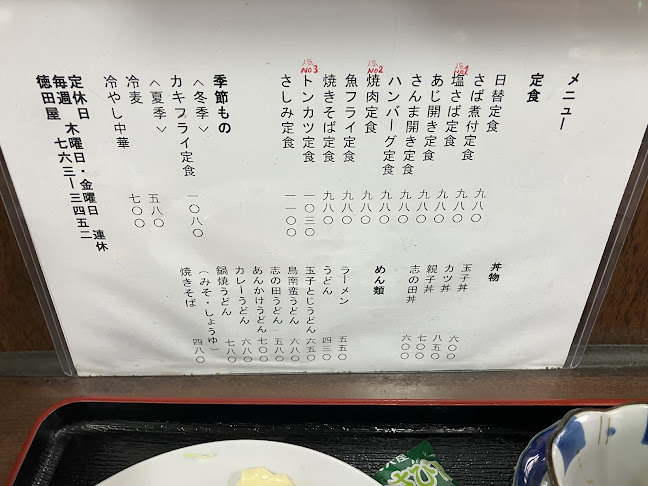 メニュー
定食
日替定食
さば煮付定食 九八〇
人気 No1
塩さば定食 九八〇
あじ開き定食 九八〇
さんま開き定食 九八〇
ハンバーグ定食 九八〇
人気 No2
焼肉定食 九八〇
魚フライ定食 九八〇
焼きそば定食 九八〇
人気 No3
トンカツ定食 一〇三〇
さしみ定食 一一〇〇
季節もの
＜冬季＞
カキフライ定食 一〇八〇
＜夏季＞
冷麦 五八〇
冷やし中華 七〇〇
丼物
玉子丼 六〇〇
カツ丼 八五〇
親子丼 七〇〇
志の田丼 六〇〇
めん類
ラーメン 五五〇
うどん 四三〇
玉子とじうどん 六五〇
鳥南蛮うどん 六八〇
志の田うどん 五八〇
あんかけうどん 七〇〇
カレーうどん 六八〇
鍋焼うどん 七八〇
（みそ・しょうゆ）
焼きそば 四八〇
定休日
毎週 木曜日・金曜日 連休
徳田屋 七六三ー三四五二